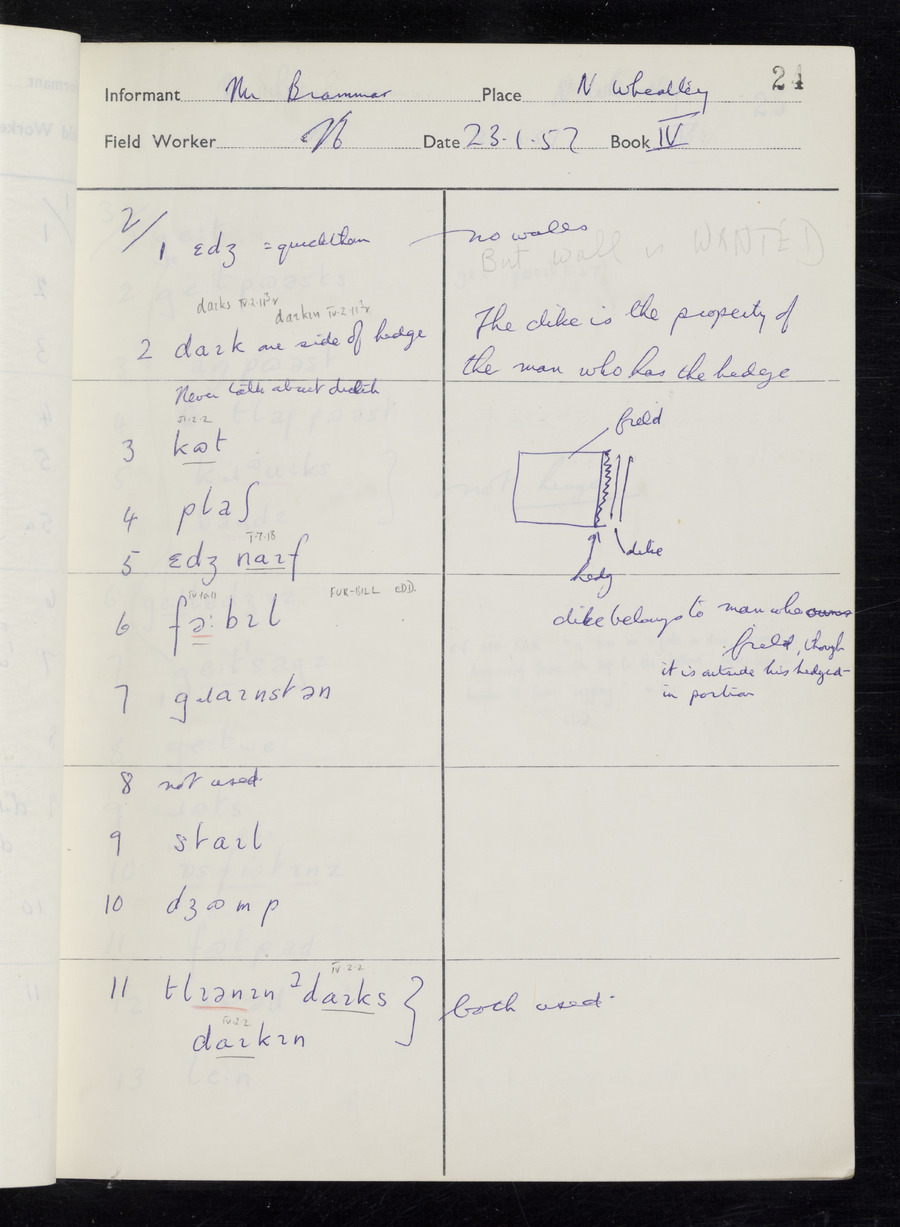 24
Informant Mr Brammar Place N Wheatley
Field Worker Date 23.1.57 Book IV
2/
1 ɛdʒ = quickthorn
no walls
But wall is WANTED
daɪks IV.2.11
daɪkɪn IV.2.11
2 daɪk one side of hedge
The dike is the property of
the man who has the hedge
Never talk about ditch
VI.2.2
3 kɷt
field
4 plaʃ
I.7.18
5 ɛdʒ naɪf
dike
hedg
FUR-BILL EDD.
6 fəːbɪl
dike belongs to man who owns
field, though
it is outside his hedged-
in portion
7 gɹaɪnstən
8 not used.
9 staɪl
10 dʒɷmp
IV.2.2
11 tlɪənɪn ²daɪks
both used.
IV.2.2
daɪkɪn